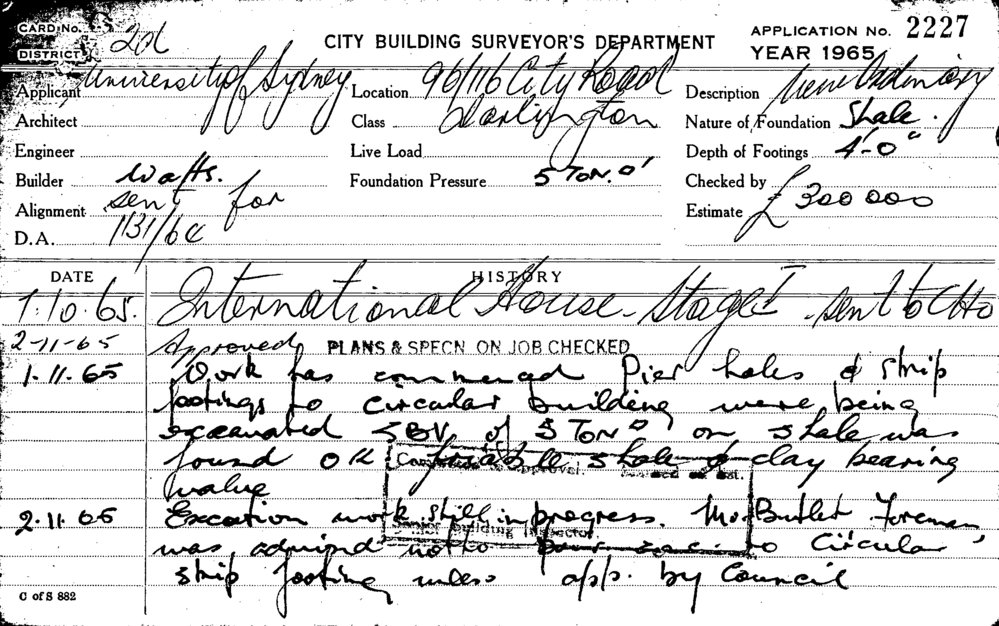 CARD No.
DISTRICT 2d
CITY BUILDING SURVEYOR'S DEPARTMENT
APPLICATION No. 2227
YEAR 1965
Applicant University of Sydney
Location 96/116 City Road
Description New Ordinary
Architect
Class Darlington
Nature of Foundation Shale.
Engineer
Live Load
Depth of Footings 4'-0"
Builder Watts.
Foundation Pressure 5 TON.
Checked by
Alignment sent for
Estimate £300 000
D.A. 1131/64
DATE HISTORY
7.10.65. International House - Stage I - sent to
2-11-65 Approved PLANS & SPECN ON JOB CHECKED
1.11.65 Work has commenced Pier holes & strip
footings to circular building were being
excavated SBV of 5 TON on shale was
found OK shale & clay bearing
value
2.11.65 Excation work still in progress. Mr Butler Foreman
was advised not to to circular
strip footing unless app. by Council
Senior Building Inspector
C of S 882